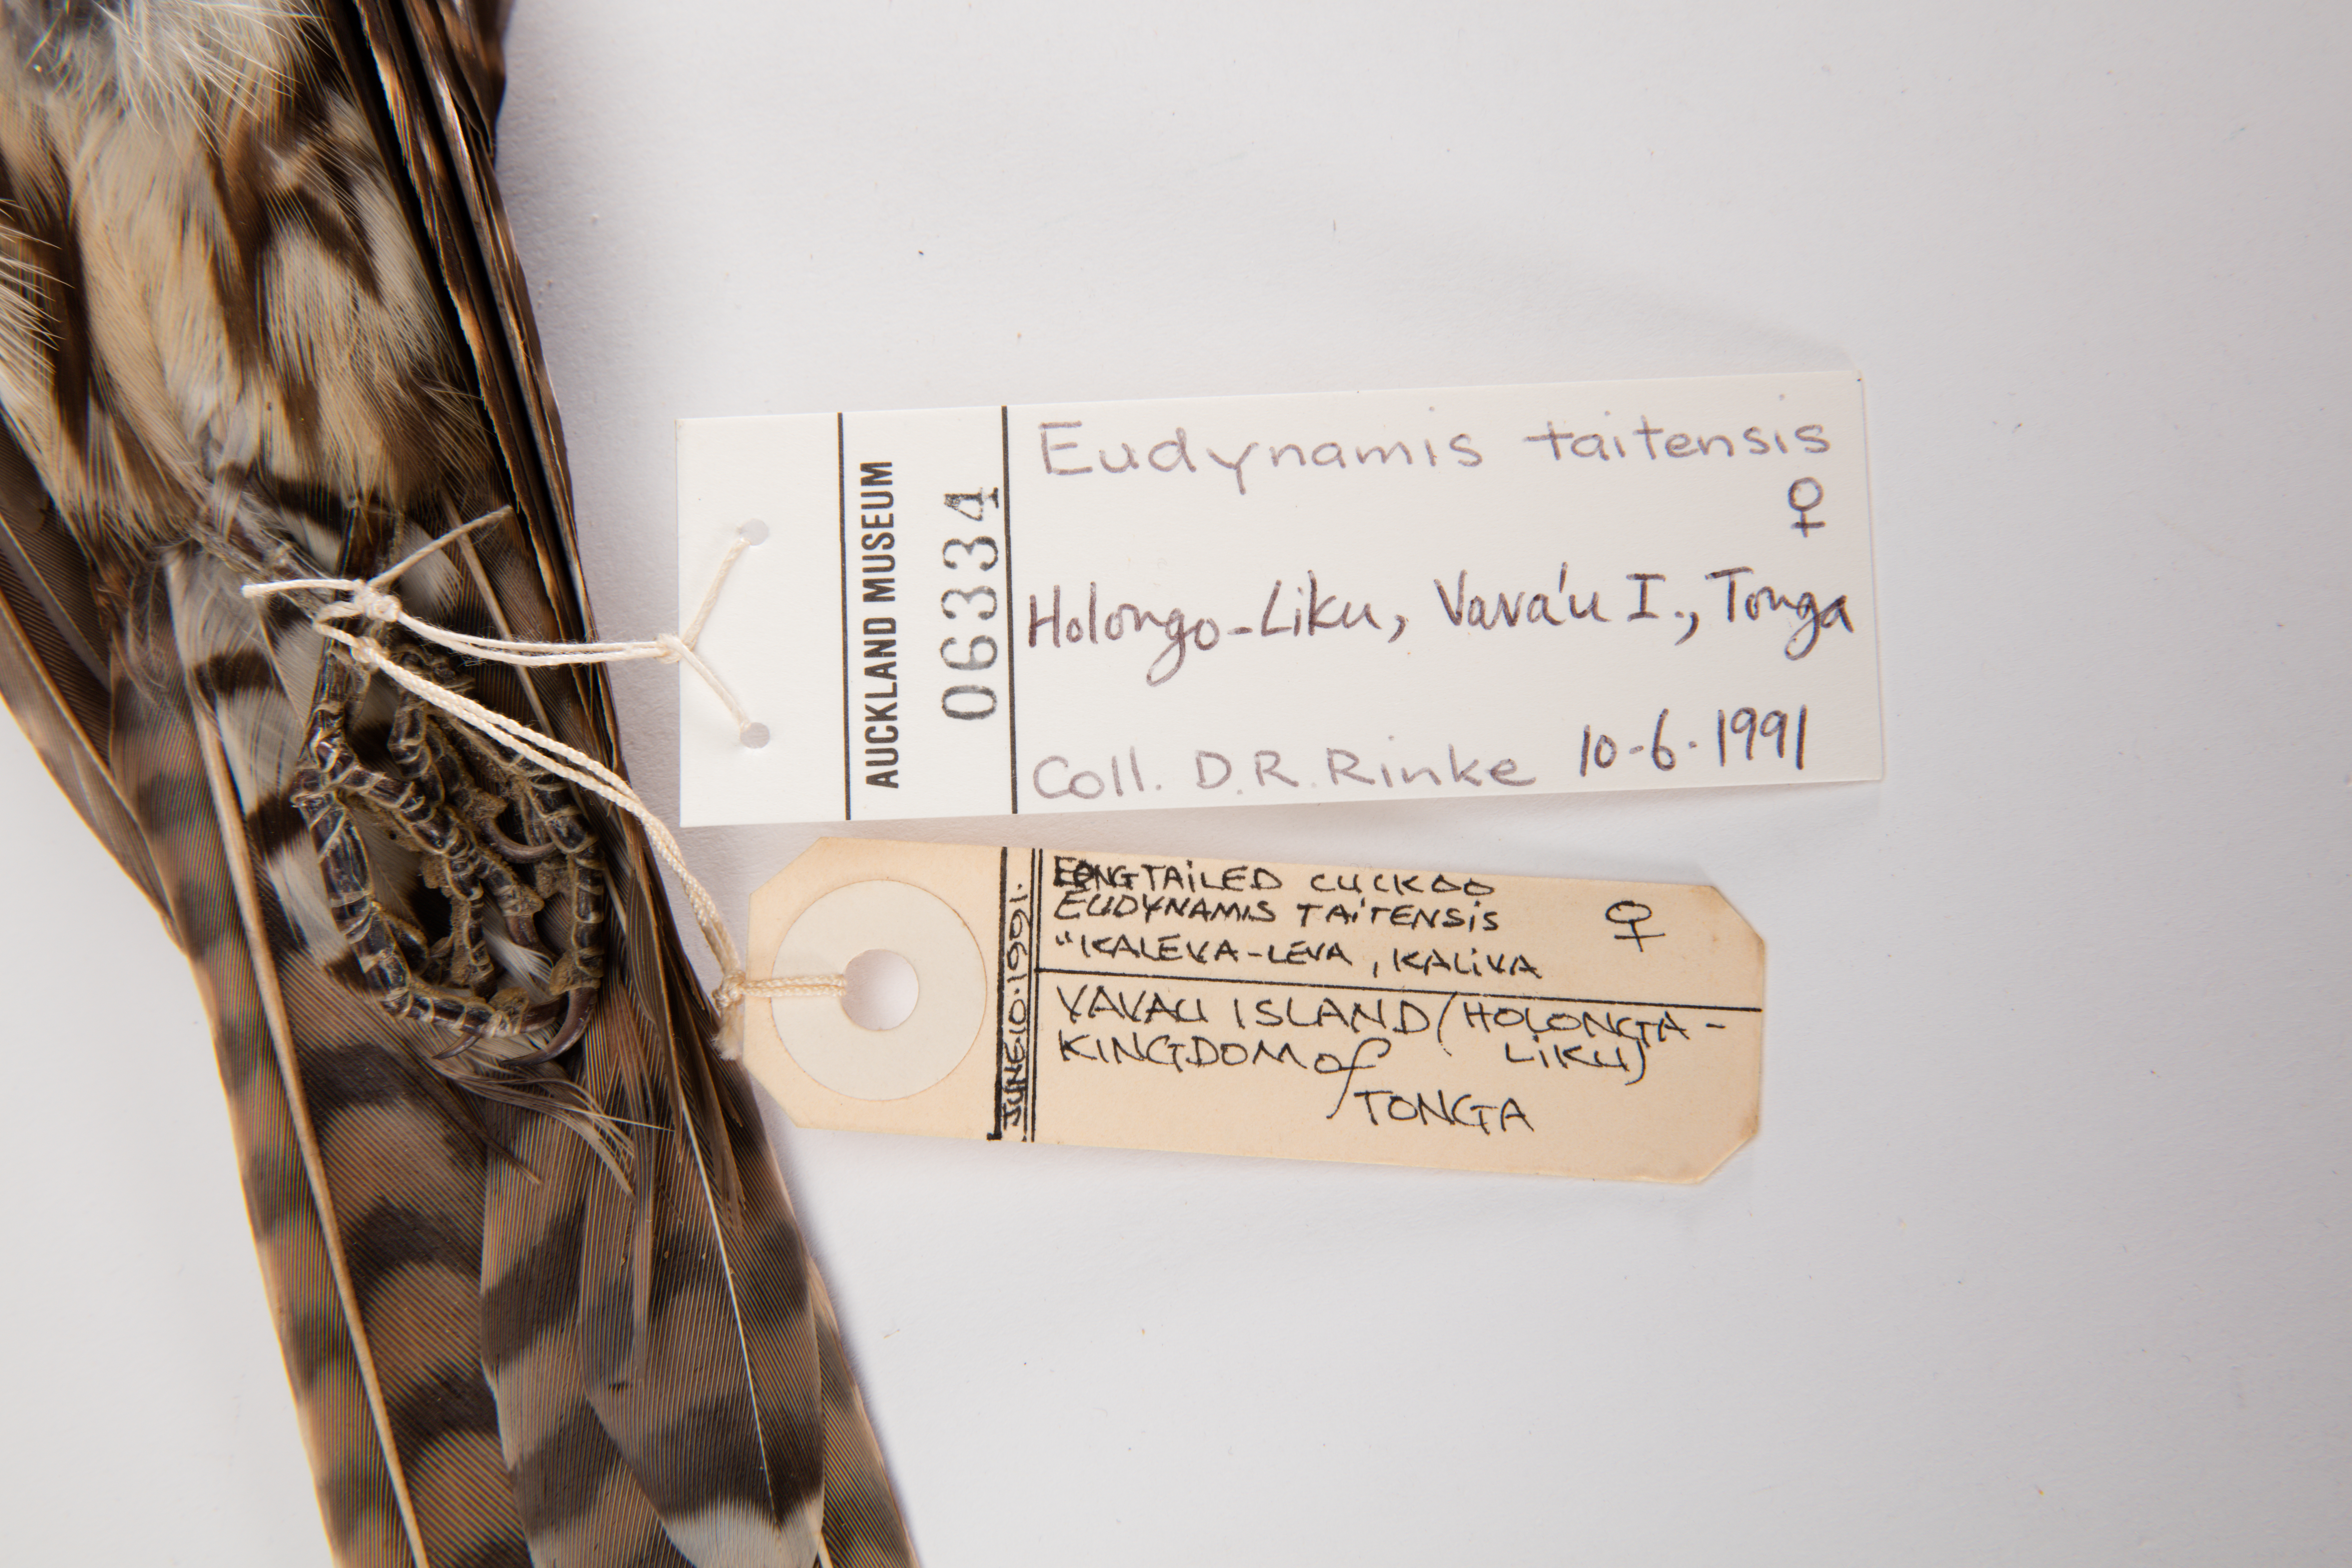 AUCKLAND MUSEUM
06334
Eudynamis taitensis
♀
Holongo-Liku, Vava'u I., Tonga
Coll. D.R. Rinke 10-6-1991
JUNE·10·1991·
LONGTAILED CUCKOO
EUDYNAMIS TAITENSIS ♀
"KALEVA-LEVA, KALIVA
VAVAU ISLAND (HOLONGA-
KINGDOM of LIKU)
TONGA